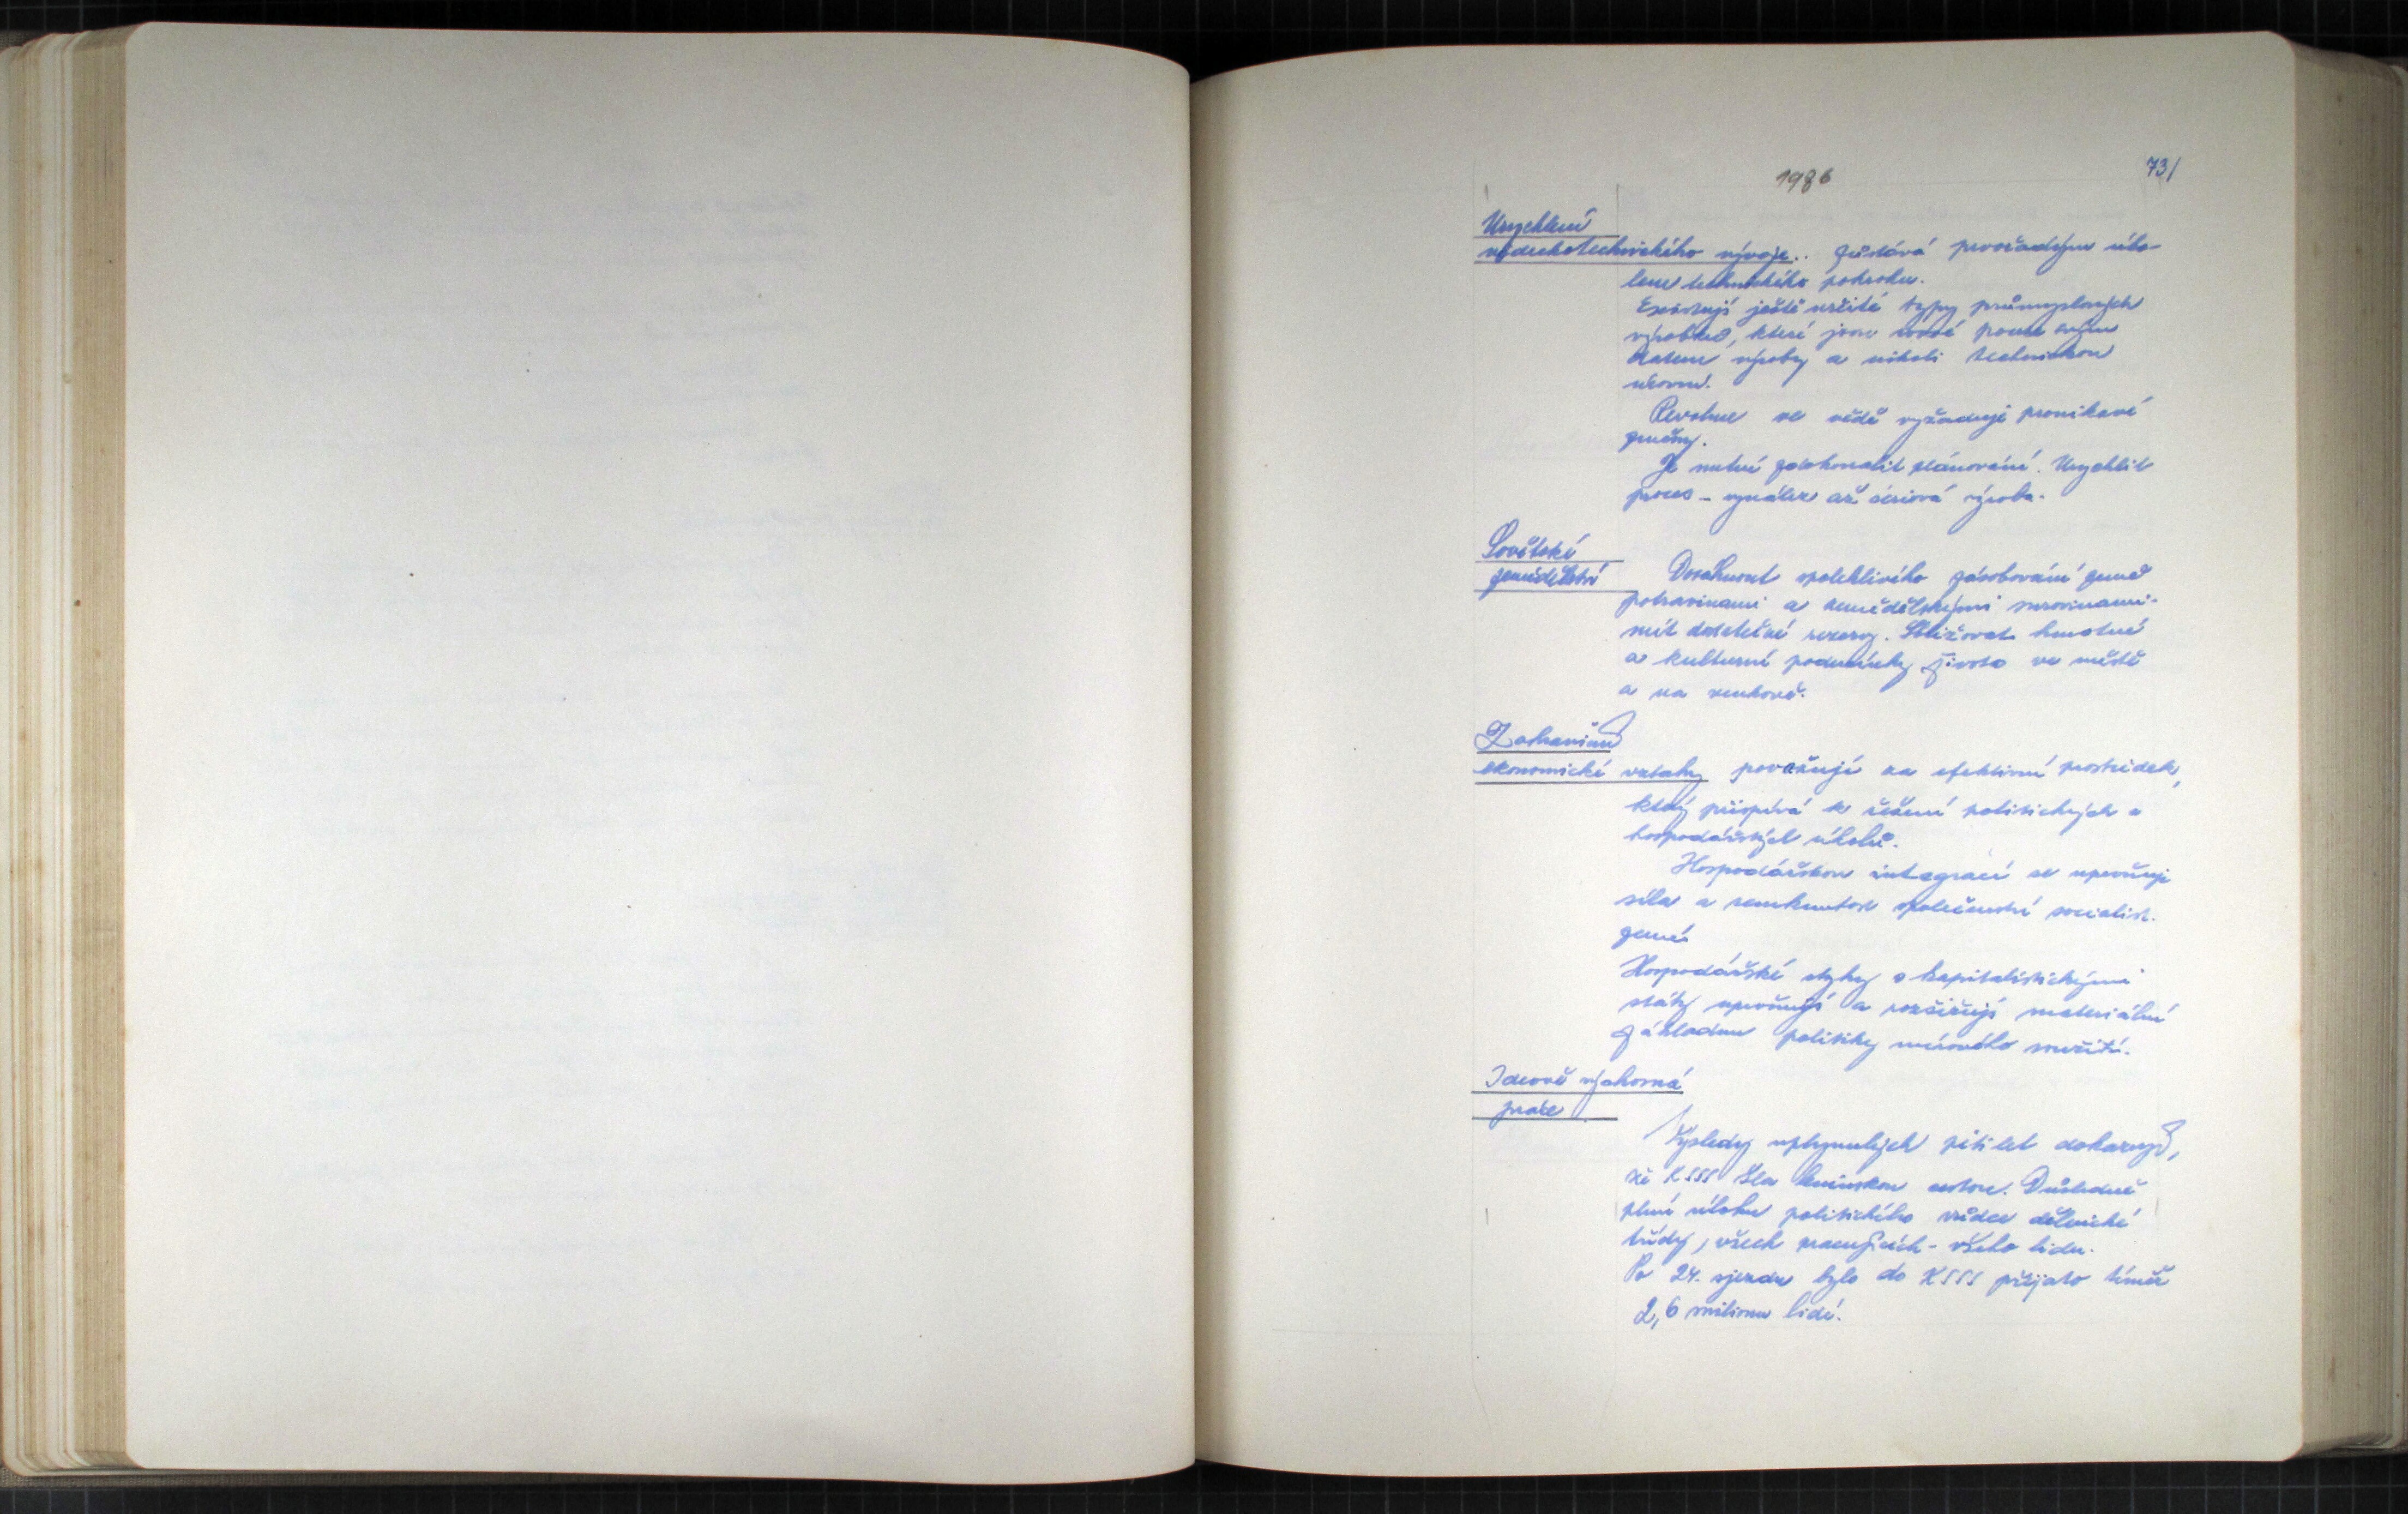 1986
73/
Urychlení
vědeckotechnického vývoje.. zůstává prvořadým úko-
lem technického pokroku.
Existují ještě určité typy průmyslových
výrobků, které jsou nové pouze svým
datem výroby a nikoli technickou
úrovní.
Revoluce ve vědě vyžaduje pronikavé
změny.
Je nutné zdokonalit plánování. Urychlit
proces - vynález až seriová výroba.
Sovětské
zemědělství
Dosáhnout spolehlivého zásobování země
potravinami a zemědělskými surovinami -
mít dostatečné rezervy. Sbližovat hmotné
a kulturní podmínky života ve městě
a na venkově.
Zahraniční
ekonomické vztahy považují za efektivní prostředek,
který přispívá k řešení politických a
hospodářských úkolů.
Hospodářskou integrací se upevňuje
síla a semknutost společenství socialist.
zemí
Hospodářské styky s kapitalistickými
státy upevňují a rozšiřují materiální
základnu politiky mírového soužití.
Ideově výchovná
práce
Výsledky uplynulých pěti let dokazují,
že KSSS šla leninskou cestou. Důsledně
plní úlohu politického vůdce dělnické
třídy, všech pracujících - všeho lidu.
Po 24. sjezdu bylo do KSSS přijato téměř
2,6 milionu lidí.